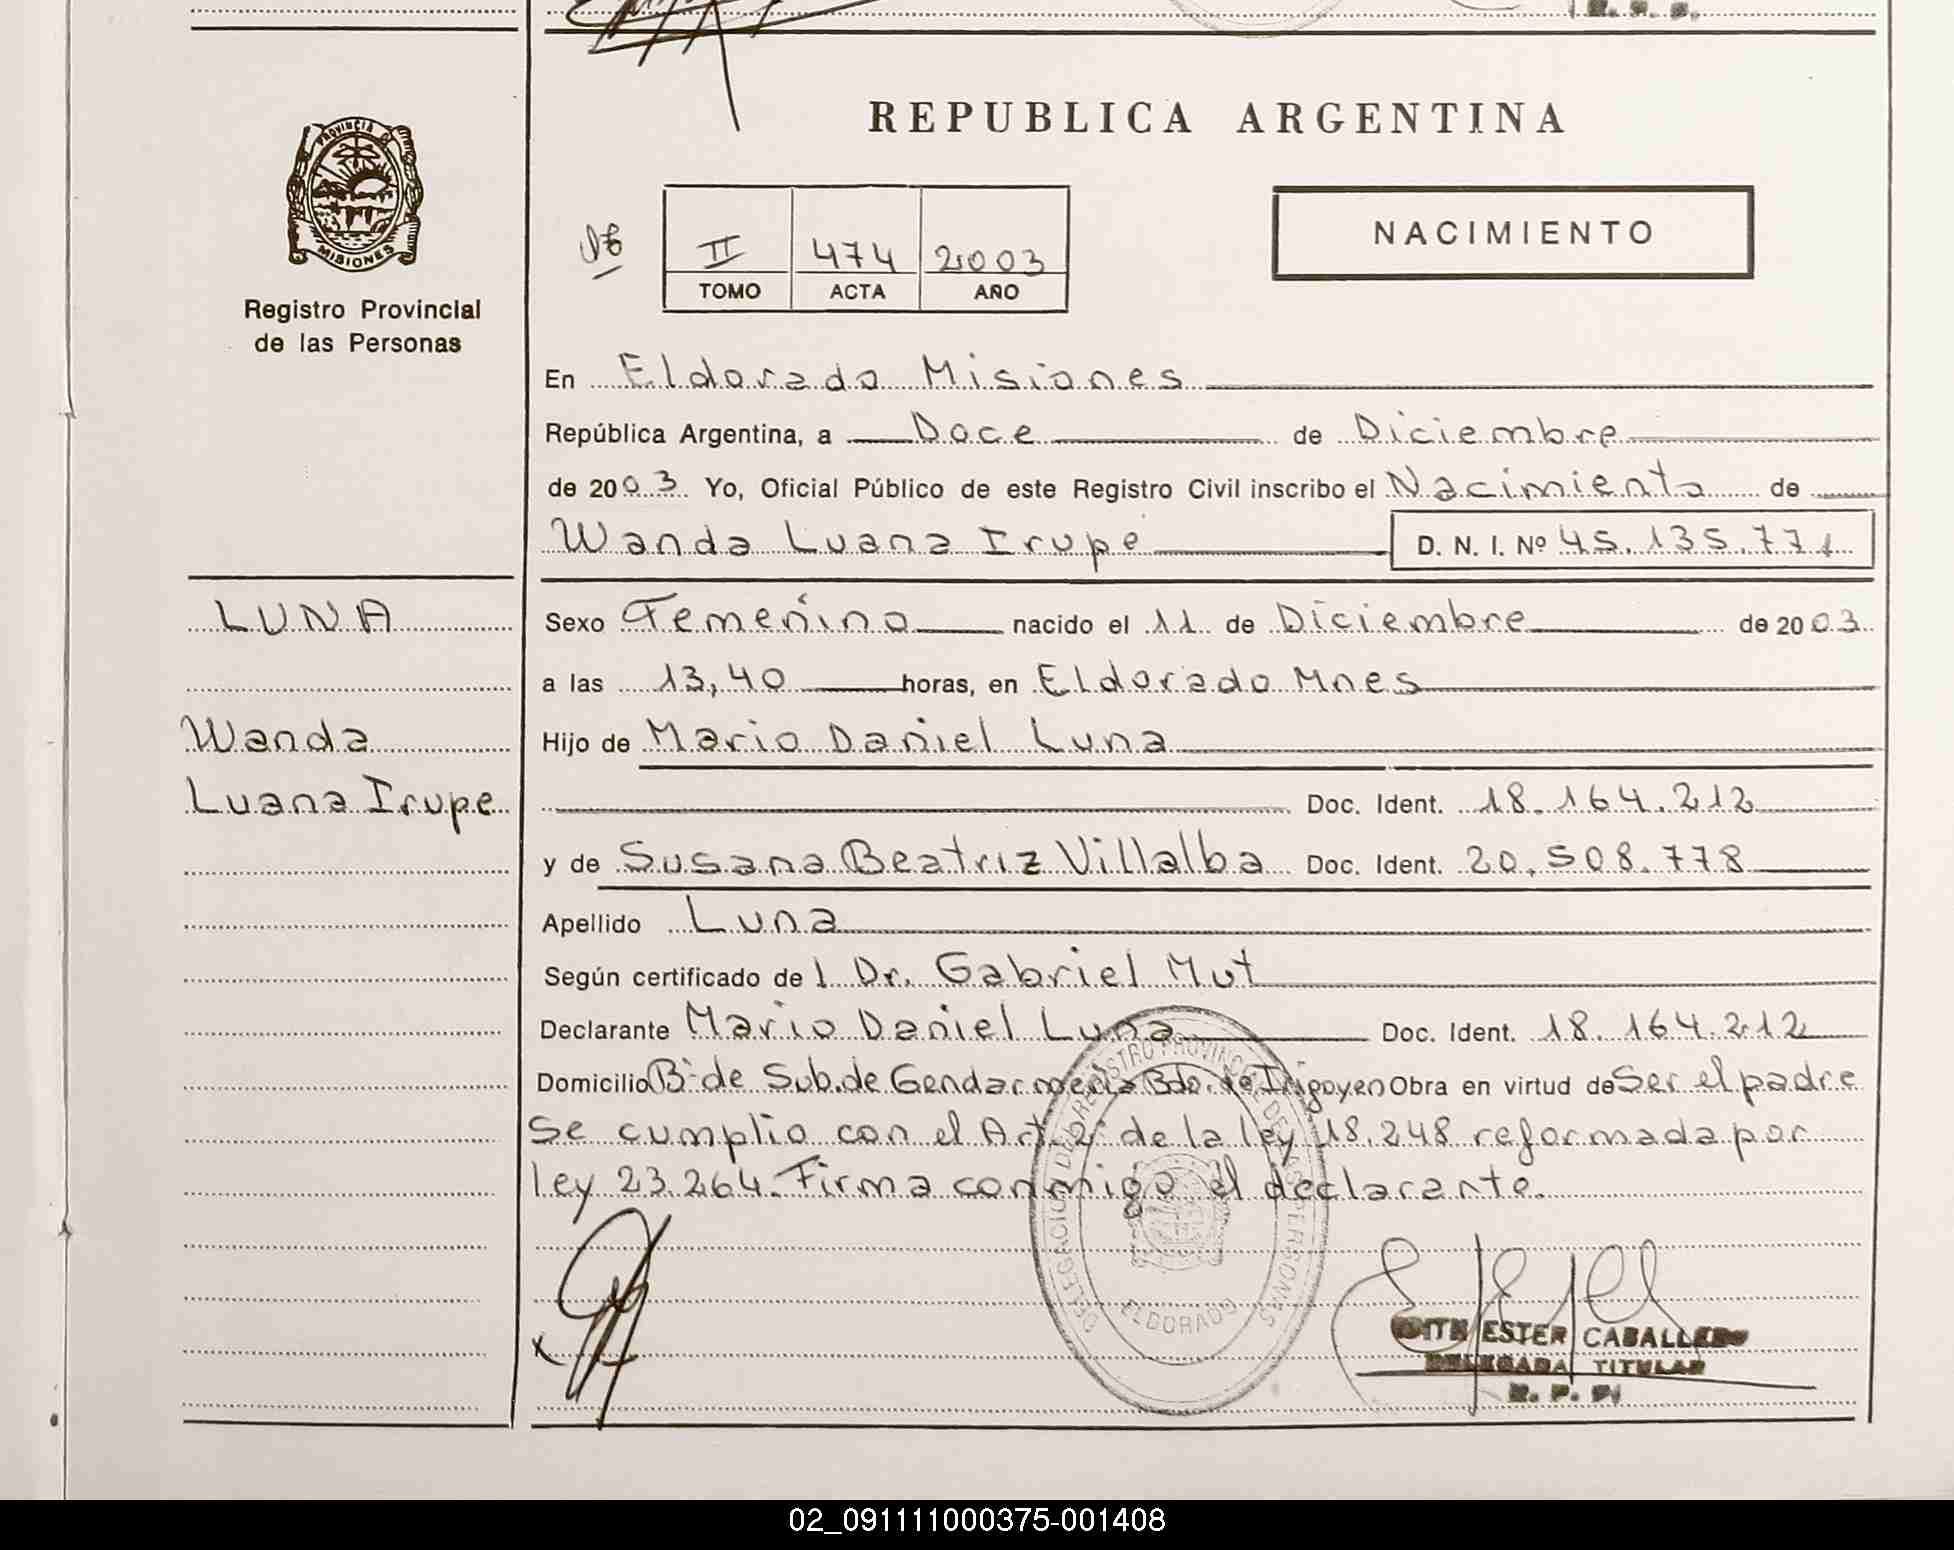 R. P. P.
PROVINCIA DE
MISIONES
Registro Provincial
de las Personas
REPUBLICA ARGENTINA
II 474 2003
TOMO ACTA AÑO
NACIMIENTO
En Eldorado Misiones
República Argentina, a Doce de Diciembre
de 2003 Yo, Oficial Público de este Registro Civil inscribo el Nacimiento de
Wanda Luana Irupe D. N. I. Nº 45.135.771
LUNA
Sexo Femenino nacido el 11 de Diciembre de 2003
a las 13,40 horas, en Eldorado Mnes
Wanda
Hijo de Mario Daniel Luna
Luana Irupe
Doc. Ident. 18.164.212
y de Susana Beatriz Villalba Doc. Ident. 20.508.778
Apellido Luna
Según certificado de l Dr. Gabriel Mut
Declarante Mario Daniel Luna Doc. Ident. 18.164.212
Domicilio Bº de Sub. de Gendarmeria Bdo. de Irigoyen Obra en virtud de Ser el padre
Se cumplio con el Art. 2º de la ley 18.248 reformada por
ley 23.264. Firma conmigo el declarante.
DELEGACION DEL REGISTRO PROVINCIAL DE LAS PERSONAS
ELDORADO
EDITH ESTER CABALLERO
DELEGADA TITULAR
R. P. P.
02_091111000375-001408